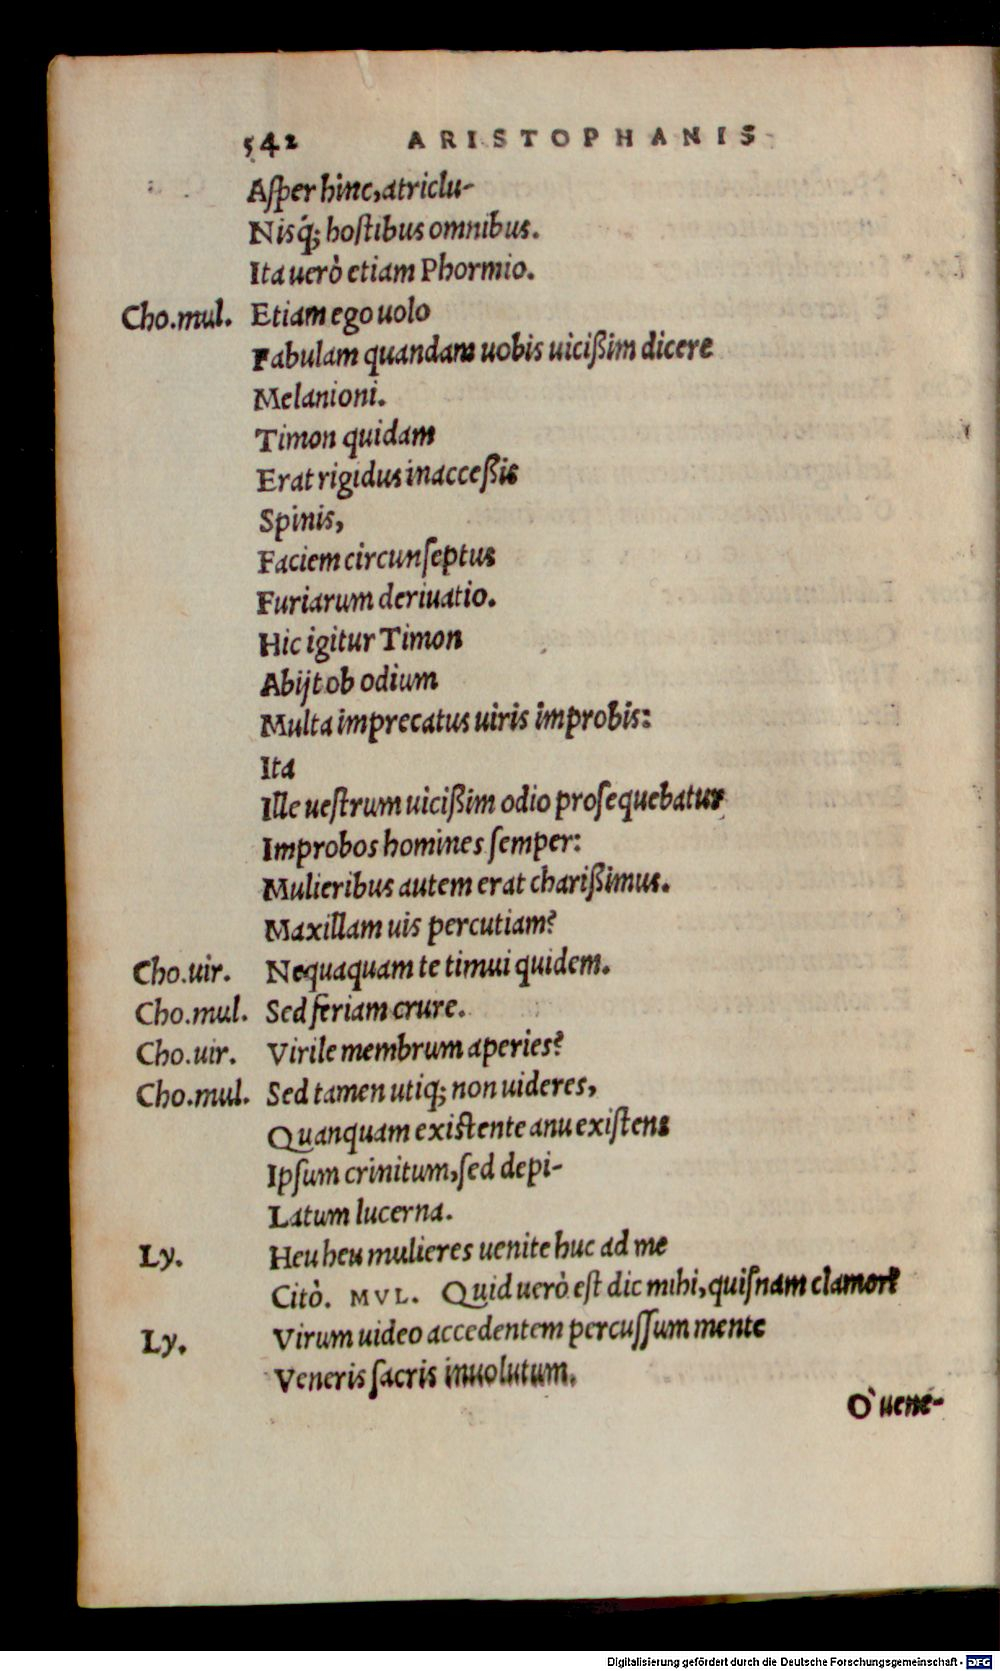 542 ARISTOPHANIS
Aſper hinc, atriclu-
Nisq́; hoſtibus omnibus.
Ita uerò etiam Phormio.
Cho.mul. Etiam ego uolo
Fabulam quandam uobis uicißim dicere
Melanioni.
Timon quidam
Erat rigidus inacceßis
Spinis,
Faciem circunſeptus
Furiarum deriuatio.
Hic igitur Timon
Abijt ob odium
Multa imprecatus uiris improbis:
Ita
Ille ueſtrum uicißim odio proſequebatur
Improbos homines ſemper:
Mulieribus autem erat charißimus.
Maxillam uis percutiam?
Cho.uir. Nequaquam te timui quidem.
Cho.mul. Sed feriam crure.
Cho.uir. Virile membrum aperies?
Cho.mul. Sed tamen utiq; non uideres,
Quanquam exiſtente anu exiſtens
Ipſum crinitum, ſed depi-
Latum lucerna.
Ly. Heu heu mulieres uenite huc ad me
Citò. MVL. Quid uerò eſt dic mihi, quiſnam clamor?
Ly. Virum uideo accedentem percuſſum mente
Veneris ſacris inuolutum.
O' uene-
Digitalisierung gefördert durch die Deutsche Forschungsgemeinschaft - DFG